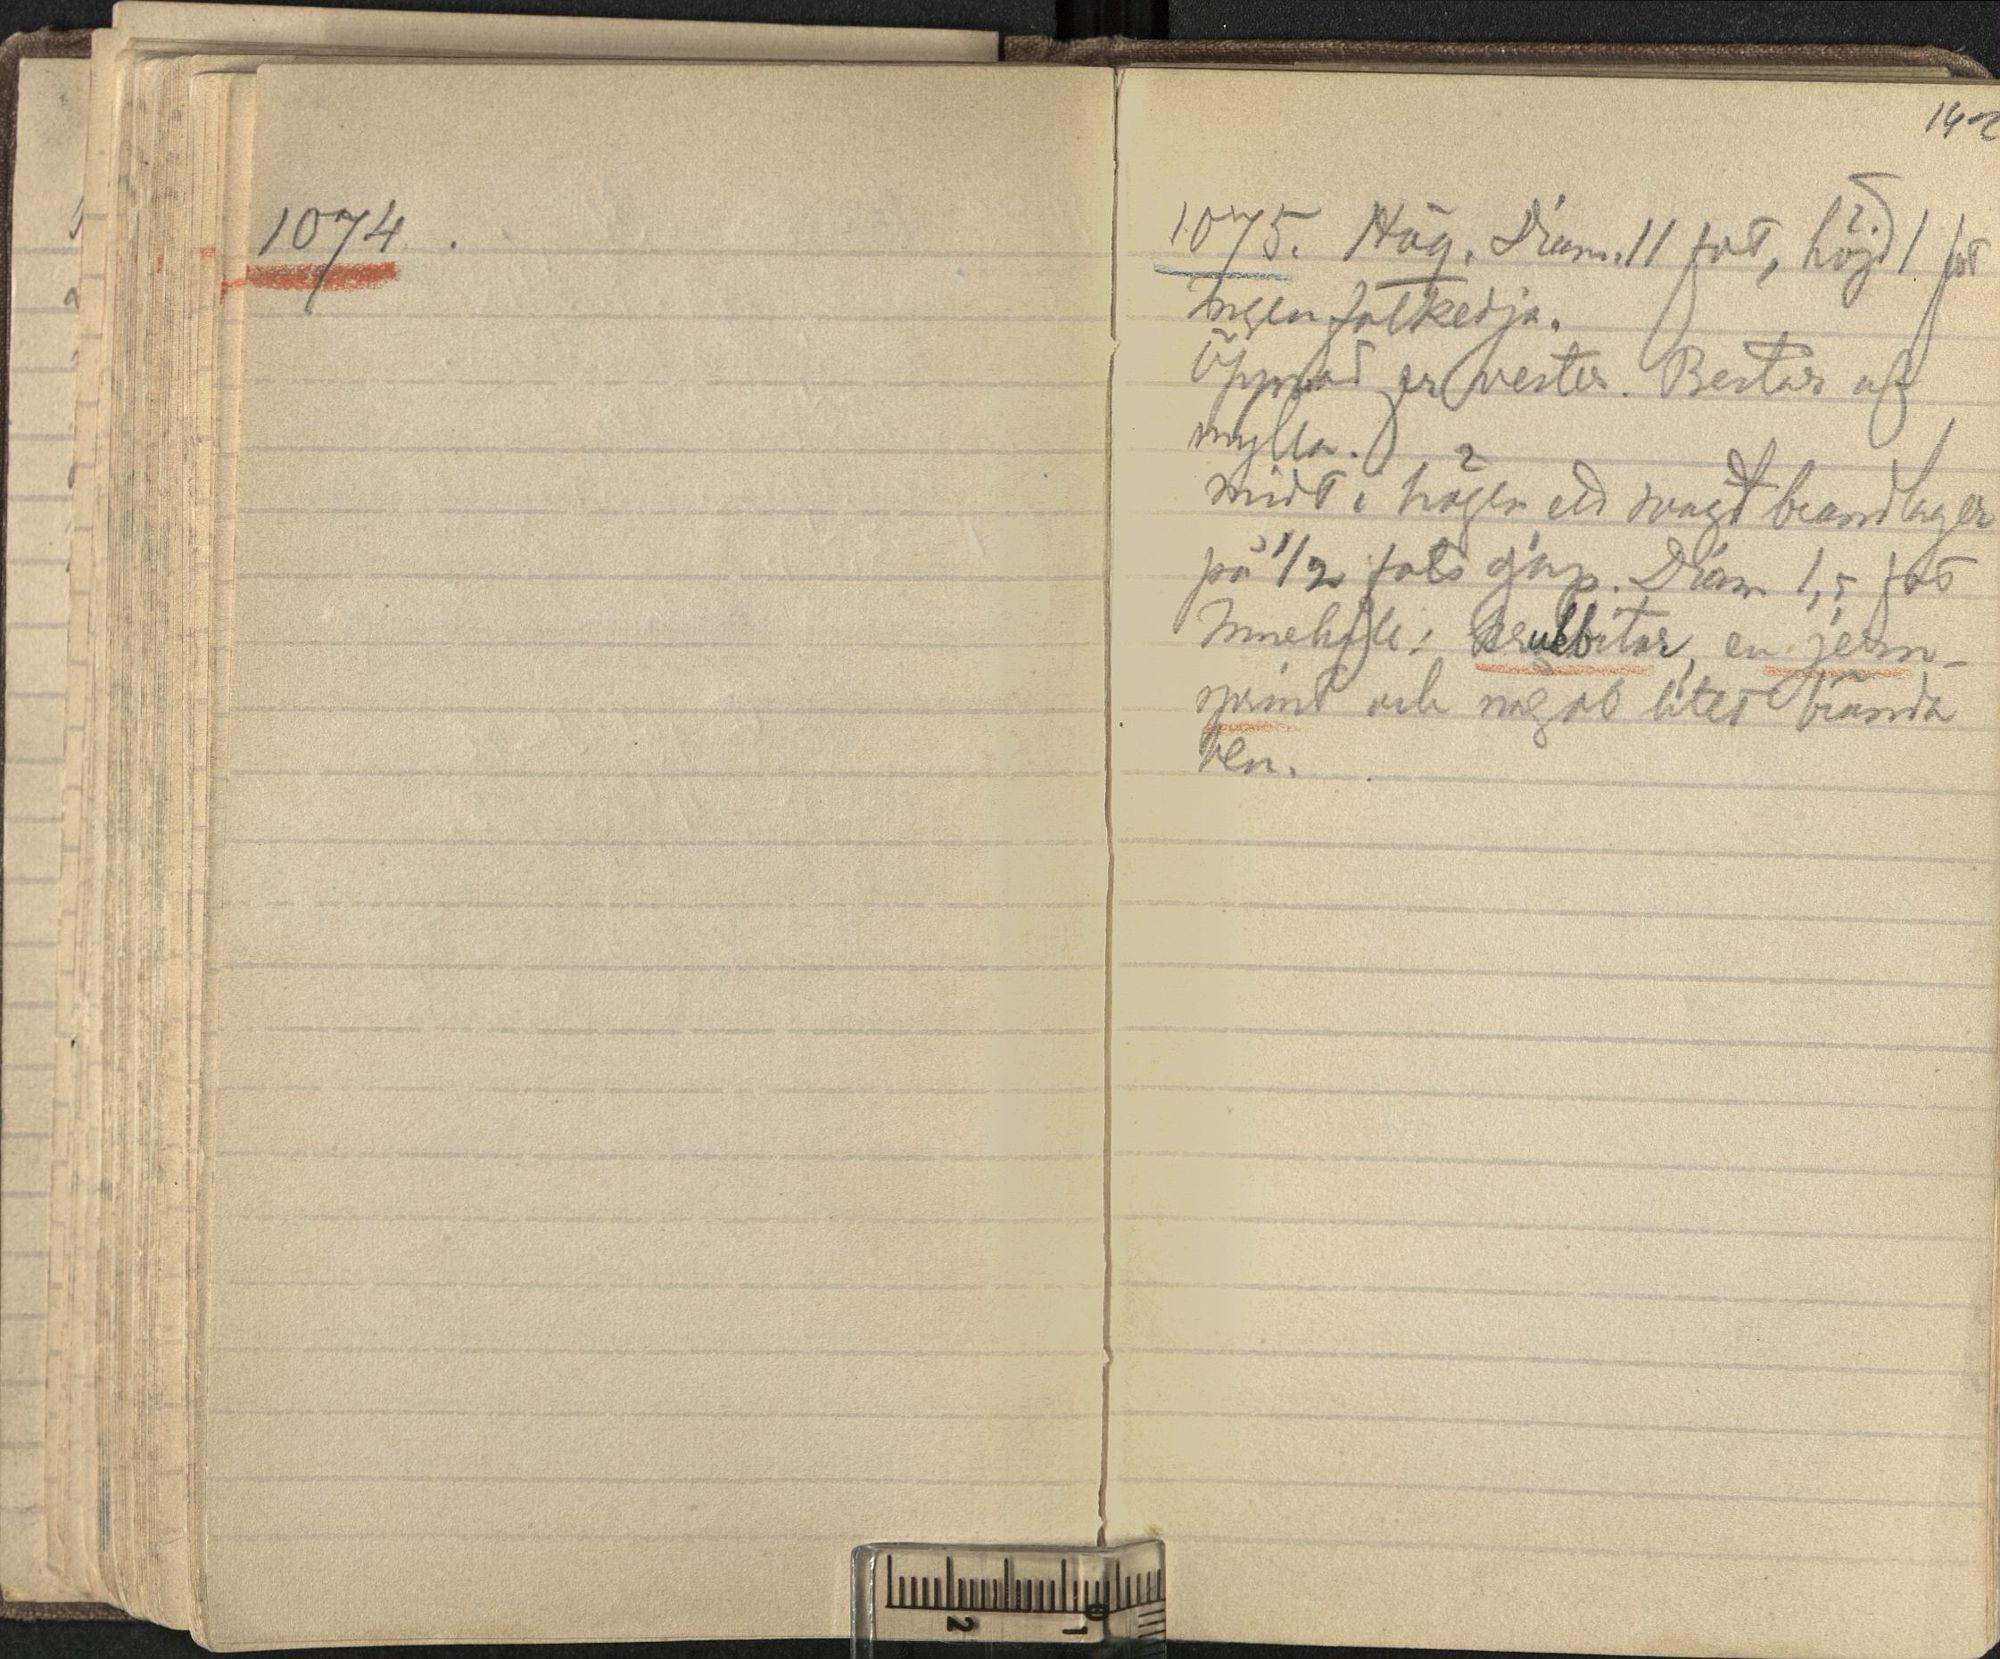 1074.
142
1075. Hög. Diam. 11 fot, höjd 1 fot
Ingen fotkedja.
Öppnad fr vester. Består af
mylla.
midt i högen ett svagt brandlager
på 1/2 fots djup. Diam 1,5 fot
Innehöll: krukbitar, en jern-
sprint och något litet brända
ben.
2
1
0